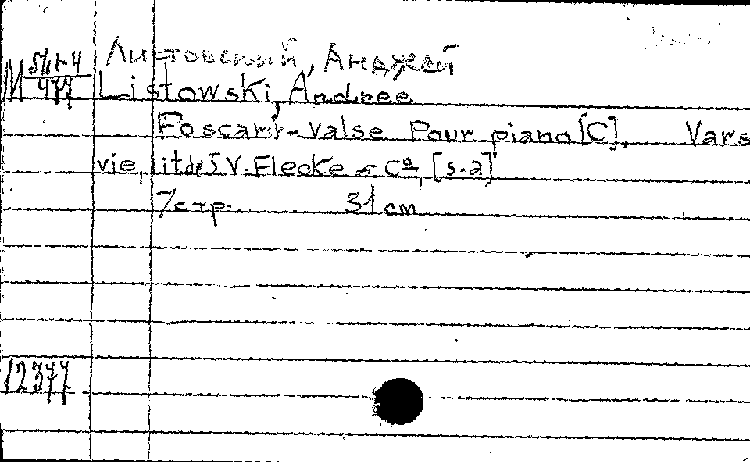 Листовский, Анджей
M 511-4
477
Listowski, Andree
Foscari-valse Pour piano [C]. Vars
vie, lit de J.V. Flecke & Cº, [s.a]
7 стр. 31 cm
12377